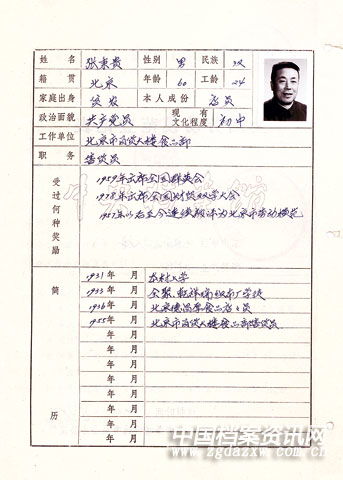 姓名 张秉贵 性别 男 民族 汉
籍贯 北京 年龄 60 工龄 24
家庭出身 贫农 本人成份 店员
政治面貌 共产党员 现有文化程度 初中
工作单位 北京市百货大楼食品部
职务 售货员
受过何种奖励
1959年出席全国群英会
1978年出席全国财贸双学大会
1957年以后至今连续被评为北京市劳动模范
简历
1931年 月 农村上学
1933年 月
1936年 月
1955年 月 北京市百货大楼食品部售货员
年 月
年 月
年 月
年 月
年 月
年 月
年 月
中国档案资讯网
www.zgdazxw.com.cn